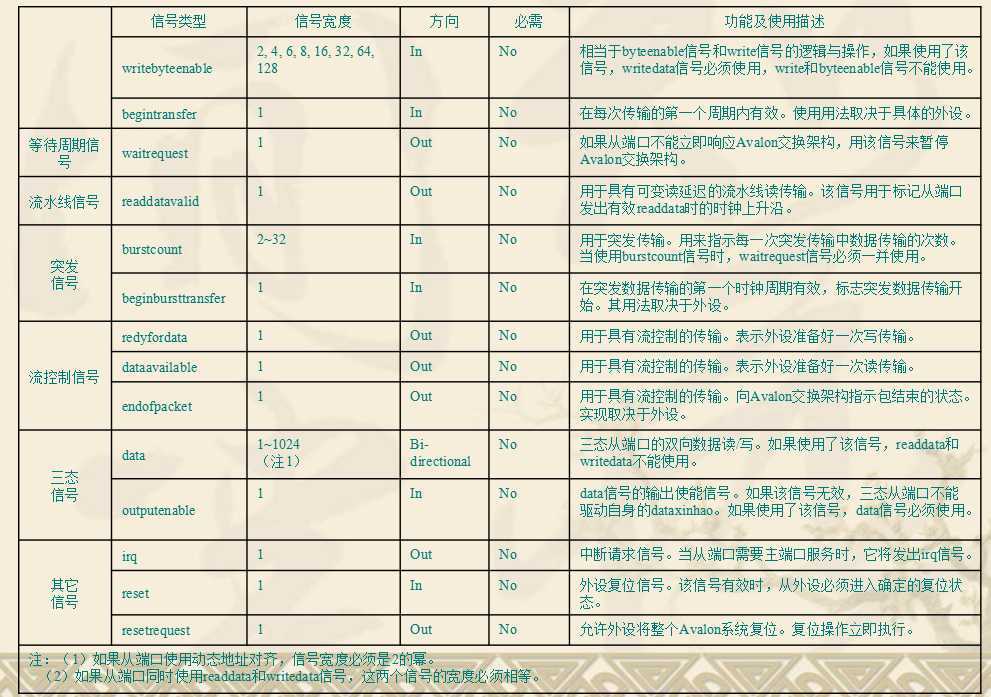 信号类型 信号宽度 方向 必需 功能及使用描述
writebyteenable 2, 4, 6, 8, 16, 32, 64, In No 相当于byteenable信号和write信号的逻辑与操作，如果使用了该
128 信号，writedata信号必须使用，write和byteenable信号不能使用。
begintransfer 1 In No 在每次传输的第一个周期内有效。使用用法取决于具体的外设。
等待周期信 waitrequest 1 Out No 如果从端口不能立即响应Avalon交换架构，用该信号来暂停
号 Avalon交换架构。
流水线信号 readdatavalid 1 Out No 用于具有可变读延迟的流水线读传输。该信号用于标记从端口
发出有效readdata时的时钟上升沿。
突发
信号
burstcount 2~32 In No 用于突发传输。用来指示每一次突发传输中数据传输的次数。
当使用burstcount信号时，waitrequest信号必须一并使用。
beginbursttransfer 1 In No 在突发数据传输的第一个时钟周期有效，标志突发数据传输开
始。其用法取决于外设。
流控制信号
redyfordata 1 Out No 用于具有流控制的传输。表示外设准备好一次写传输。
dataavailable 1 Out No 用于具有流控制的传输。表示外设准备好一次读传输。
endofpacket 1 Out No 用于具有流控制的传输。向Avalon交换架构指示包结束的状态。
实现取决于外设。
三态
信号
data 1~1024 Bi- No 三态从端口的双向数据读/写。如果使用了该信号，readdata和
（注1） directional writedata不能使用。
outputenable 1 In No data信号的输出使能信号。如果该信号无效，三态从端口不能
驱动自身的dataxinhao。如果使用了该信号，data信号必须使用。
其它
信号
irq 1 Out No 中断请求信号。当从端口需要主端口服务时，它将发出irq信号。
reset 1 In No 外设复位信号。该信号有效时，从外设必须进入确定的复位状
态。
resetrequest 1 Out No 允许外设将整个Avalon系统复位。复位操作立即执行。
注：（1）如果从端口使用动态地址对齐，信号宽度必须是2的幂。
（2）如果从端口同时使用readdata和writedata信号，这两个信号的宽度必须相等。